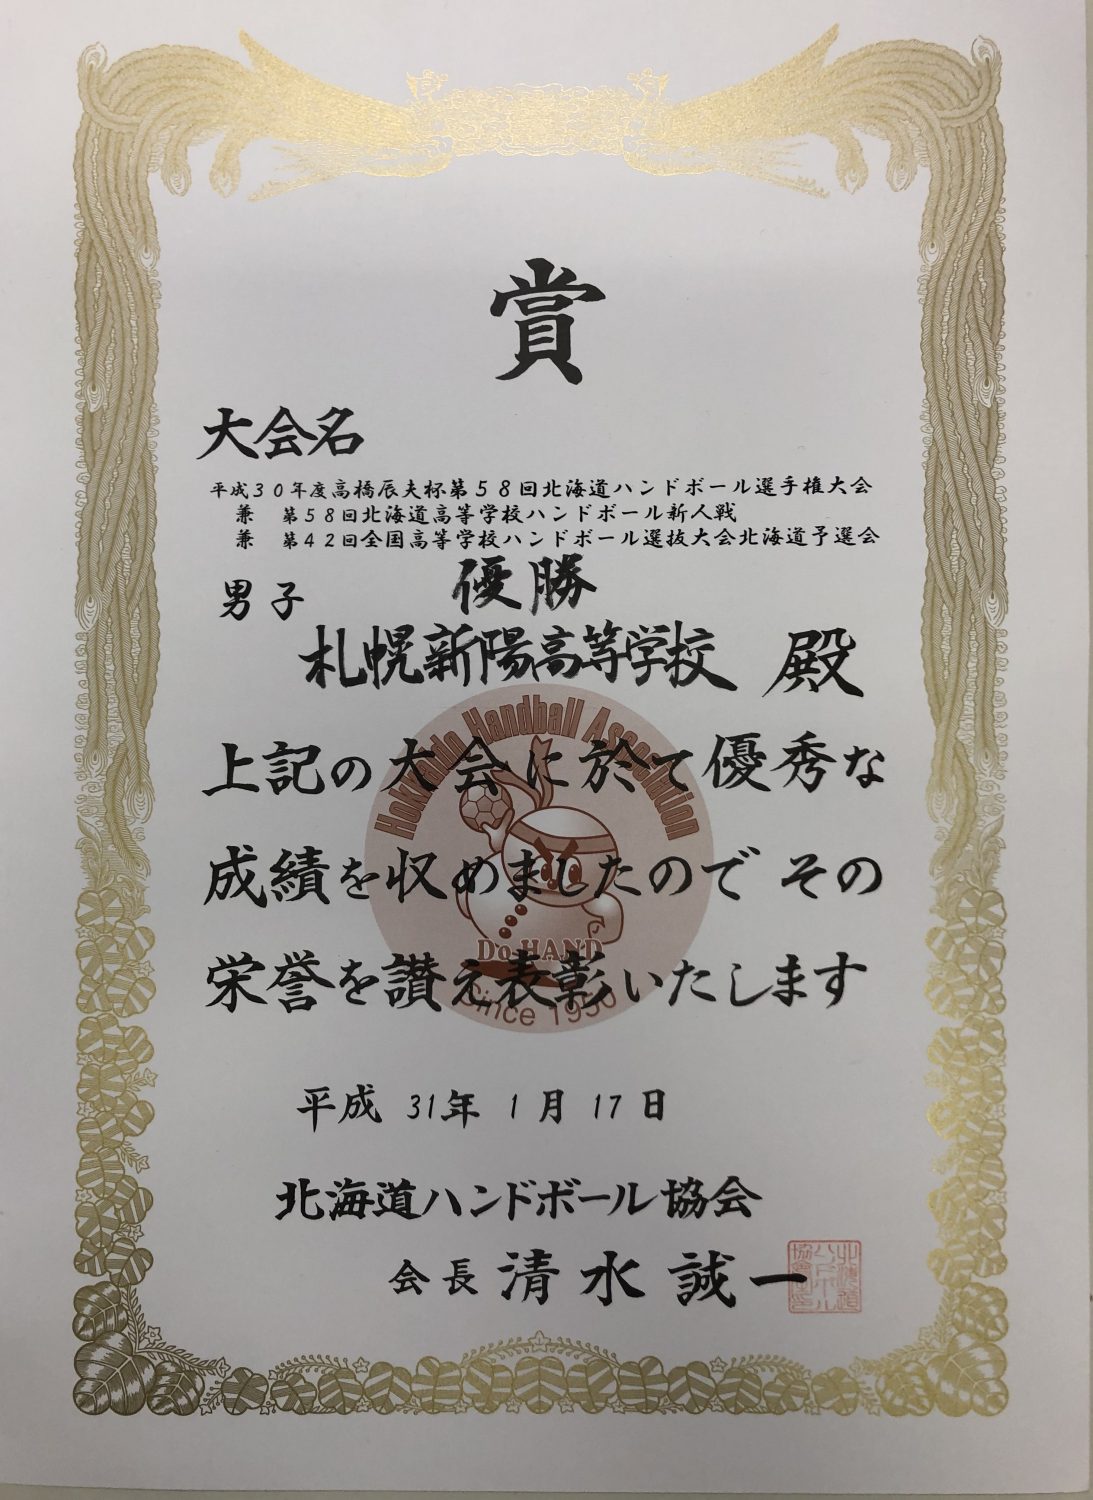 賞
大会名
平成３０年度高橋辰夫杯第５８回北海道ハンドボール選手権大会
兼　第５８回北海道高等学校ハンドボール新人戦
兼　第４２回全国高等学校ハンドボール選抜大会北海道予選会
男子　優勝
札幌新陽高等学校　殿
Hokkaido Handball Association
上記の大会に於て優秀な
成績を収めましたので その
Do HAND
栄誉を讃え表彰いたします
Since 1950
平成 31年 1月 17日
北海道ハンドボール協会
会長 清水 誠一